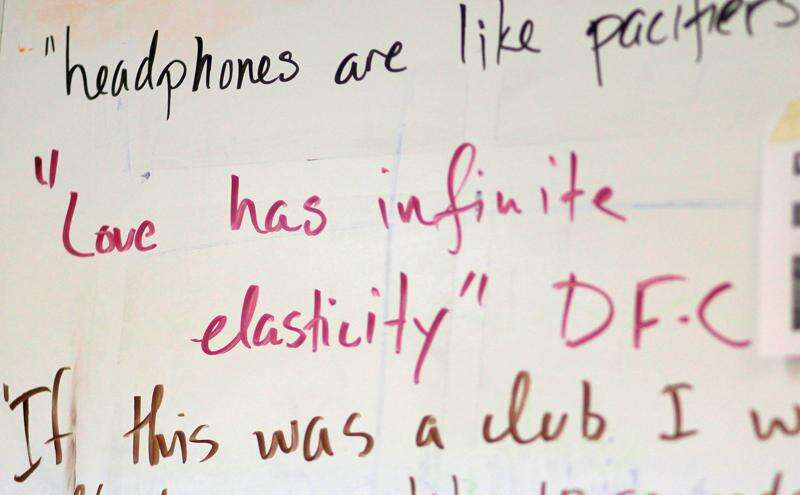 "headphones are like pacifiers
"Love has infinite
elasticity" DF.C
"If this was a club I w